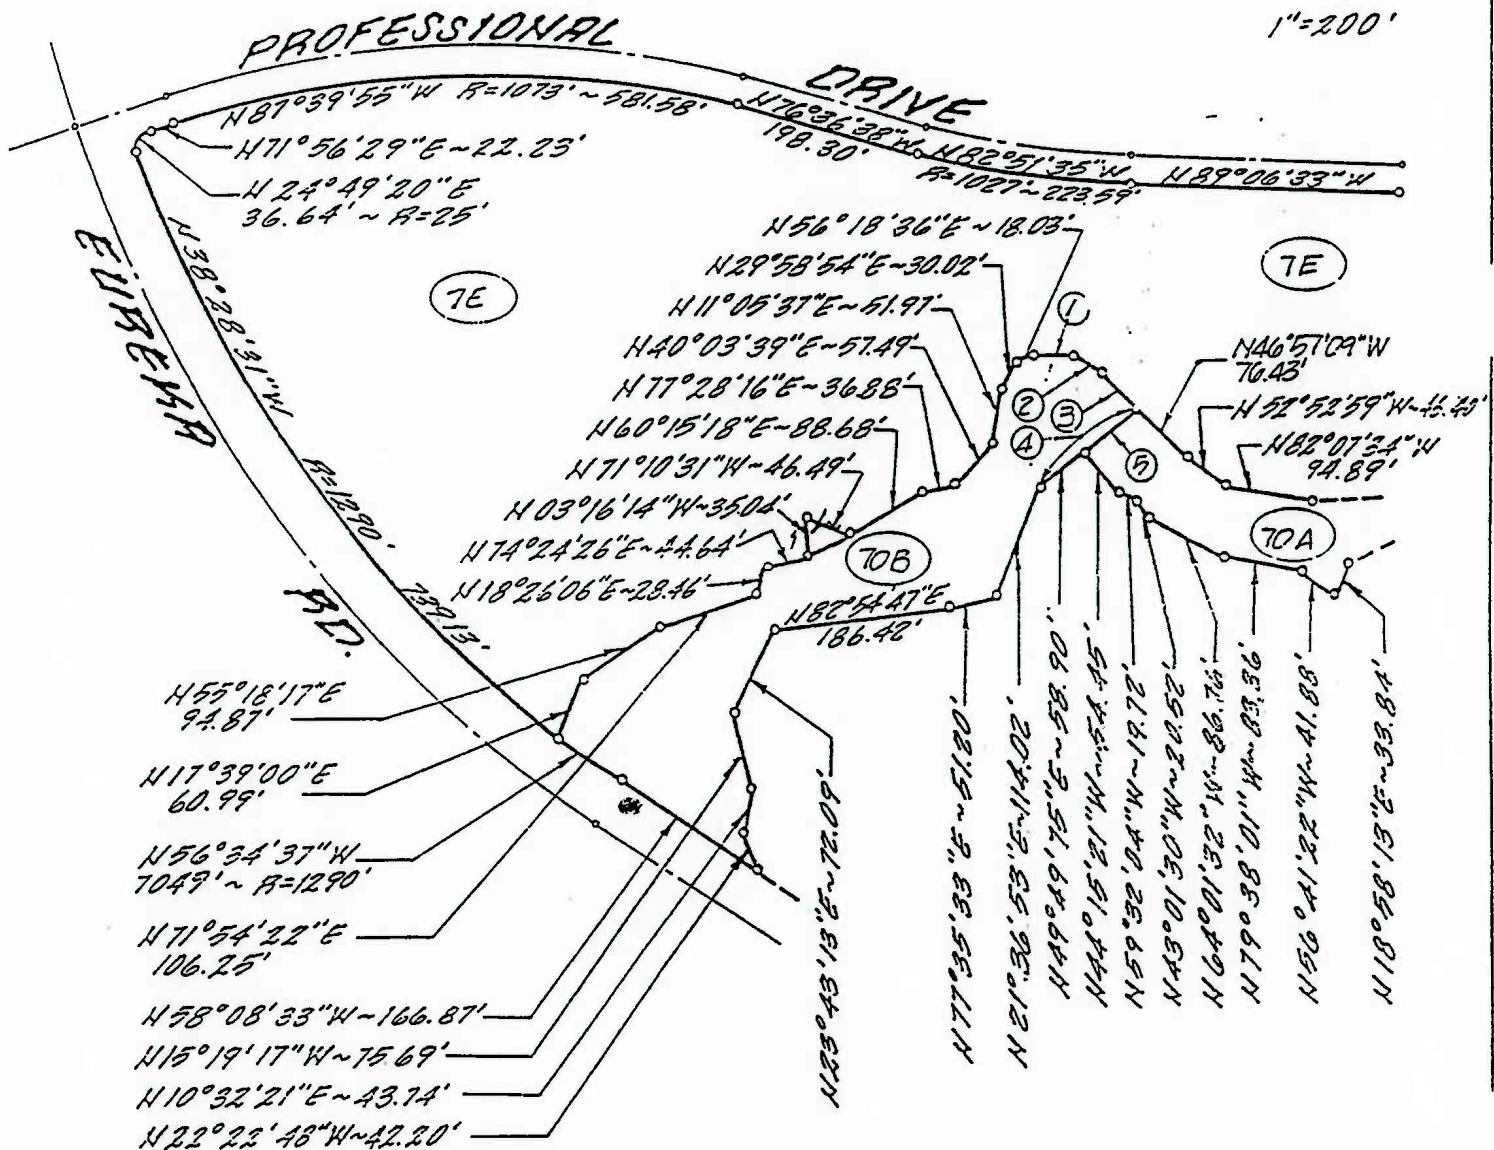 1"=200'
PROFESSIONAL
DRIVE
N87°39'55"W R=1073'~581.58'
N76°36'38"W
198.30'
N82°51'35"W
R=1027'~223.59'
N89°06'33"W
N71°56'29"E~22.23'
N24°49'20"E
36.64'~R=25'
EUREKA
RD.
N38°28'31"W
R=1290'
739.13'
7E
7E
N56°18'36"E~18.03'
N29°58'54"E~30.02'
N11°05'37"E~51.97'
N40°03'39"E~57.49'
N77°28'16"E~36.88'
N60°15'18"E~88.68'
N71°10'31"W~46.49'
N03°16'14"W~35.04'
N74°24'26"E~44.64'
N18°26'06"E~28.46'
1
2
3
4
5
N46°57'09"W
76.43'
N52°52'59"W
N82°07'34"W
94.89'
70A
70B
N82°54'47"E
186.42'
N55°18'17"E
94.87'
N17°39'00"E
60.99'
N56°34'37"W
70.49'~R=1290'
N71°54'22"E
106.25'
N58°08'33"W~166.87'
N15°19'17"W~75.69'
N10°32'21"E~43.74'
N22°22'48"W~42.20'
N23°43'13"E~72.09'
N77°35'33"E~51.20'
N21°36'53"E~114.02'
N49°49'51"E~58.90'
N44°15'21"W~54.45'
N59°32'04"W~19.72'
N43°01'30"W~20.52'
N64°01'32"W~86.75'
N79°38'01"W~83.36'
N56°41'22"W~41.88'
N18°58'13"E~33.84'